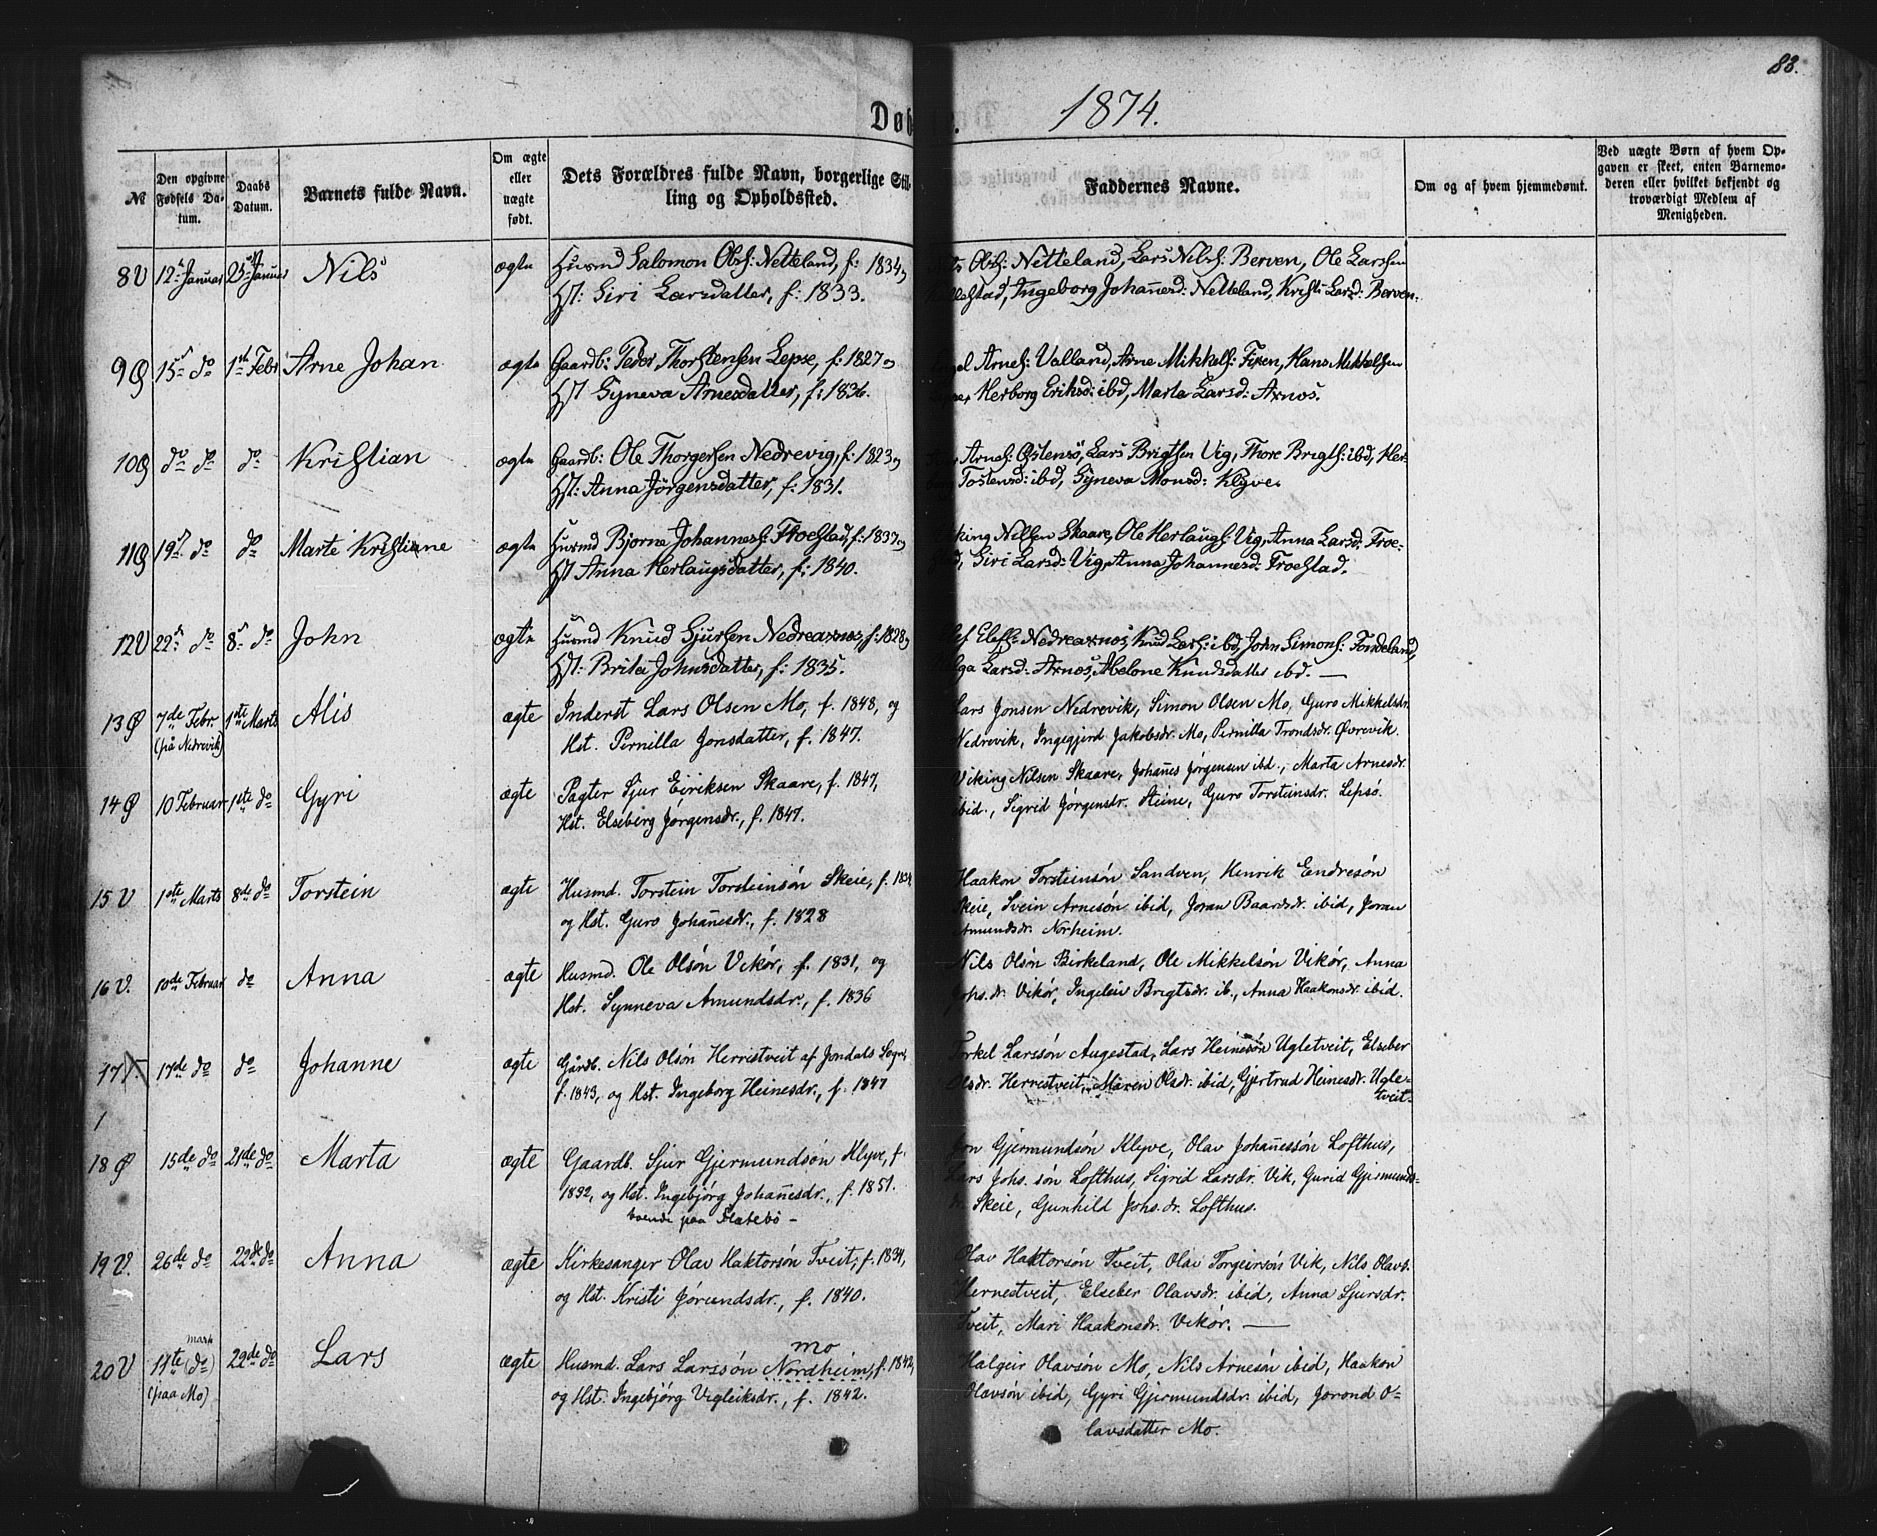 83.
Døb 1874.
No
Den opgivne Fødsels Datum.
Daabs Datum.
Barnets fulde Navn.
Om ægte eller uægte født.
Dets Forældres fulde Navn, borgerlige Stilling og Opholdssted.
Faddernes Navne.
Om og af hvem hjemmedøbt.
Ved uægte Børn af hvem Opgaven er skeet, enten Barnemoderen eller hvilket bekjendt og troværdigt Medlem af Menigheden.
8 V 12 Januar 25 Januar Nils ægte Husmd Salomon Ols: Netteland, f: 1834 og Ols: Netteland, Lars Nils: Berven, Ole Larssen
Hst: Siri Larsdatter, f: 1833. Ingeborg Johannesd: Netteland, Kristi Larsd: Berven.
9 Ø 15 do 1st Febr Arne Johan ægte Gaardb: Peder Thorstensen Lepsø, f: 1827 og Arnes: Valland, Arne Mikkels: Fixen, Hans Mikkelsen
Hst Synneva Arnesdatter, f: 1836. Herborg Eriksd: ibd, Marta Larsd: Arnos.
10 Ø do do do Kristian ægte Gaardb: Ole Thorgersen Nedrevig, f: 1823 og Arnes: Østensö, Lars Brigtsen Vig, Thore Brigts: ibd, Her-
Hst: Anna Jörgensdatter, f: 1831. Tostensd: ibd, Synneva Monsd: Klyve.
11 Ø 19 do do Marte Kristiane ægte Husmd Bjorne Johannes: Froestad, f: 1837 og Nilssen Skaare, Ole Herlaugs: Vig, Anna Larsd: Froe-
Hst Anna Herlaugsdatter, f: 1840. Siri Larsd: Vig, Anna Johannesd: Froestad.
12 V 22 do 8 do John ægte Husmd Knud Sjursen Nedrearnos, f: 1828 og Elefs: Nedrearnos, Knud Lars: ibd, John Simons: Fondeland,
Hst: Brita Johnsdatter, f: 1835. Larsd: Arnos, Abelone Knudsdatter ibd. —
13 Ø 7de Febr. 1ste Marts Alis ægte Inderst Lars Olsen Mo, f. 1848, og Lars Jonsen Nedrevik, Simon Olsen Mo, Guro Mikkelsdr.
(på Nedrevik) Hst. Pernilla Jonsdatter, f. 1847. Nedrevik, Ingegjerd Jakobsdr. Mo, Pernilla Trondsdr. Øvrevik.
14 Ø 10 Februar 1ste do Gyri ægte Pagter Sjur Eiriksen Skaare, f. 1847, Viking Nilsen Skaare, Johañes Jørgensen ibd., Marta Arnesdr.
Hst. Elseberg Jørgensdr., f. 1847. ibid., Sigrid Jørgensdr. Steine, Guro Torsteinsdr. Lepsö.
15 V 1ste Marts 8de do Torstein ægte Husmd. Torstein Torsteinsón Skeie, f. Haakon Torsteinsón Sandven, Henrik Endresón
og Hst. Guro Johañesdr., f. 1828 Skeie, Svein Arnesón ibid, Joran Baardsdr. ibid, Joran
Amundsdr. Norheim.
16 V. 10de Februar do Anna ægte Husmd. Ole Olsón Vikór, f. 1831, og Nils Olsón Birkeland, Ole Mikkelsón Vikór, Anna
Hst. Synneva Amundsdr., f. 1836 Johs.dr. Vikór, Ingeleiv Brigtsdr. ib., Anna Haakonsdr. ibid.
17 V. 17de do do Johanne ægte Gårdb. Nils Olsón Herristveit af Jondals Sogn, Torkel Larssón Augestad, Lars Heinesón Ugletveit, Elseber
f. 1843, og Hst. Ingeborg Heinesdr., f. 1847 Olsdr. Herrestveit, Maren Olsdr. ibid, Gjertrud Heinesdr. Ugle-
tveit
18 Ø 15de do 21de do Marta ægte Gaardb. Sjur Gjermundsón Klyve, f. Jon Gjermundsón Klyve, Olav Johañessón Lofthus,
1832, og Hst. Ingebjórg Johañesdr., f. 1851. Lars Johs.són Lofthus, Sigrid Larsdr. Vik, Gurid Gjermunds-
boende paa Flatebó – dr. Skeie, Gunhild Johs.dr. Lofthus.
19 V. 26de do 22de do Anna ægte Kirkesanger Olav Haktorsón Tveit, f. 1834, Olav Haktorsón Tveit, Olav Torgeirsón Vik, Nils Olavs.
og Hst. Kristi Jórundsdr., f. 1840. Hernestveit, Elseber Olavsdr. ibid, Anna Sjursdr.
Tveit, Mari Haakonsdr. Vikór. —
mo
20 V 11te (do) marts 22de do Lars ægte Husmd. Lars Larssón Nordheim, f. 1842, Halgeir Olavsón Mo, Nils Arnesón ibid, Haakon
(paa Mo) og Hst. Ingebjórg Vigleiksdr., f. 1842. Olavsón ibid, Gyri Gjermundsdr. ibid, Jorond O-
lavsdatter Mo.